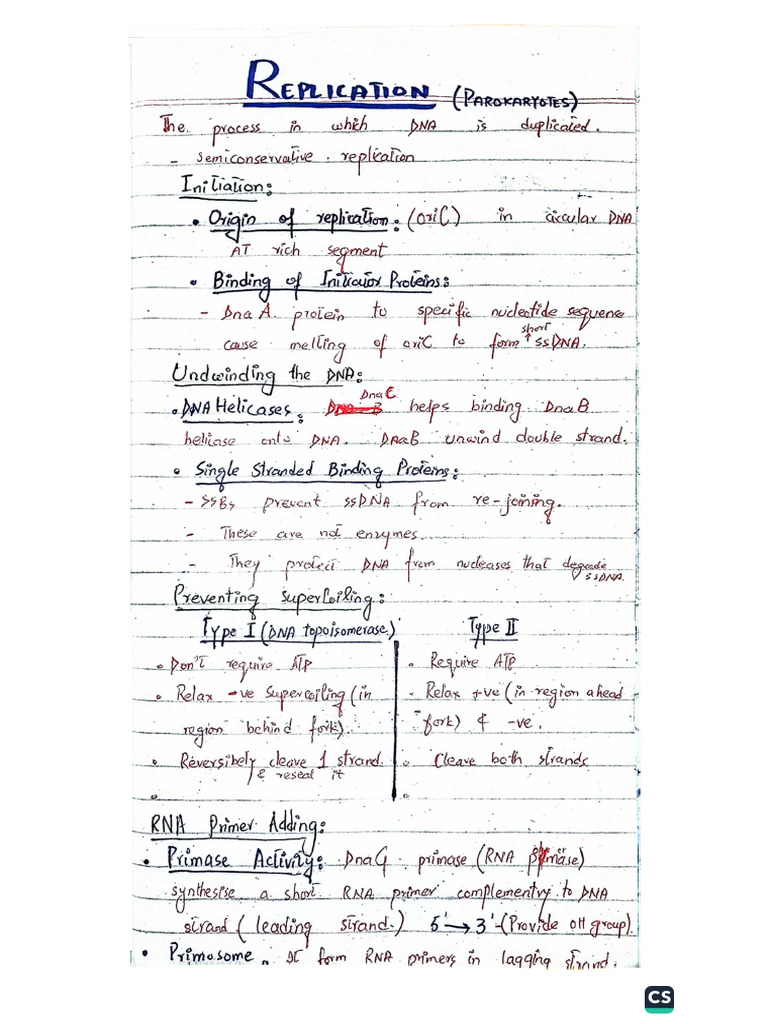 REPLICATION (PAROKARYOTES)
The process in which DNA is duplicated.
- Semiconservative replication
Initiation:
• Origin of replication: (oriC) in circular DNA
AT rich segment
• Binding of Initiator Proteins:
- DnaA protein to specific nucleotide sequence
cause melting of oriC to form short ssDNA.
Undwinding the DNA:
• DNA Helicases: DnaC helps binding DnaB
helicase onto DNA. DnaB unwind double strand.
• Single Stranded Binding Proteins:
- SSBs prevent ssDNA from re-joining.
- These are not enzymes.
- They protect DNA from nucleases that degrade ssDNA
Preventing Supercoiling:
Type I (DNA topoisomerase) Type II
• Don't require ATP • Require ATP
• Relax -ve supercoiling (in • Relax +ve (in region ahead
region behind fork). fork) & -ve.
• Reversibely cleave 1 strand. • Cleave both strands
& reseal it
RNA Primer Adding:
• Primase Activity: DnaG primase (RNA polymerase)
synthesise a short RNA primer complementry to DNA
strand (leading strand.) 5' → 3' (Provide OH group).
• Primosome. It form RNA primers in lagging strand.
CS